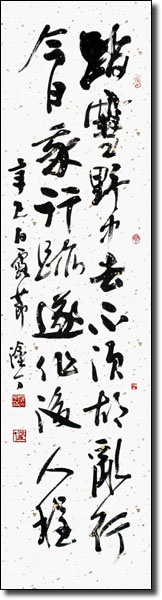 踏雪野中去不須胡亂行
今日我行跡遂作後人程
辛巳白露節塗